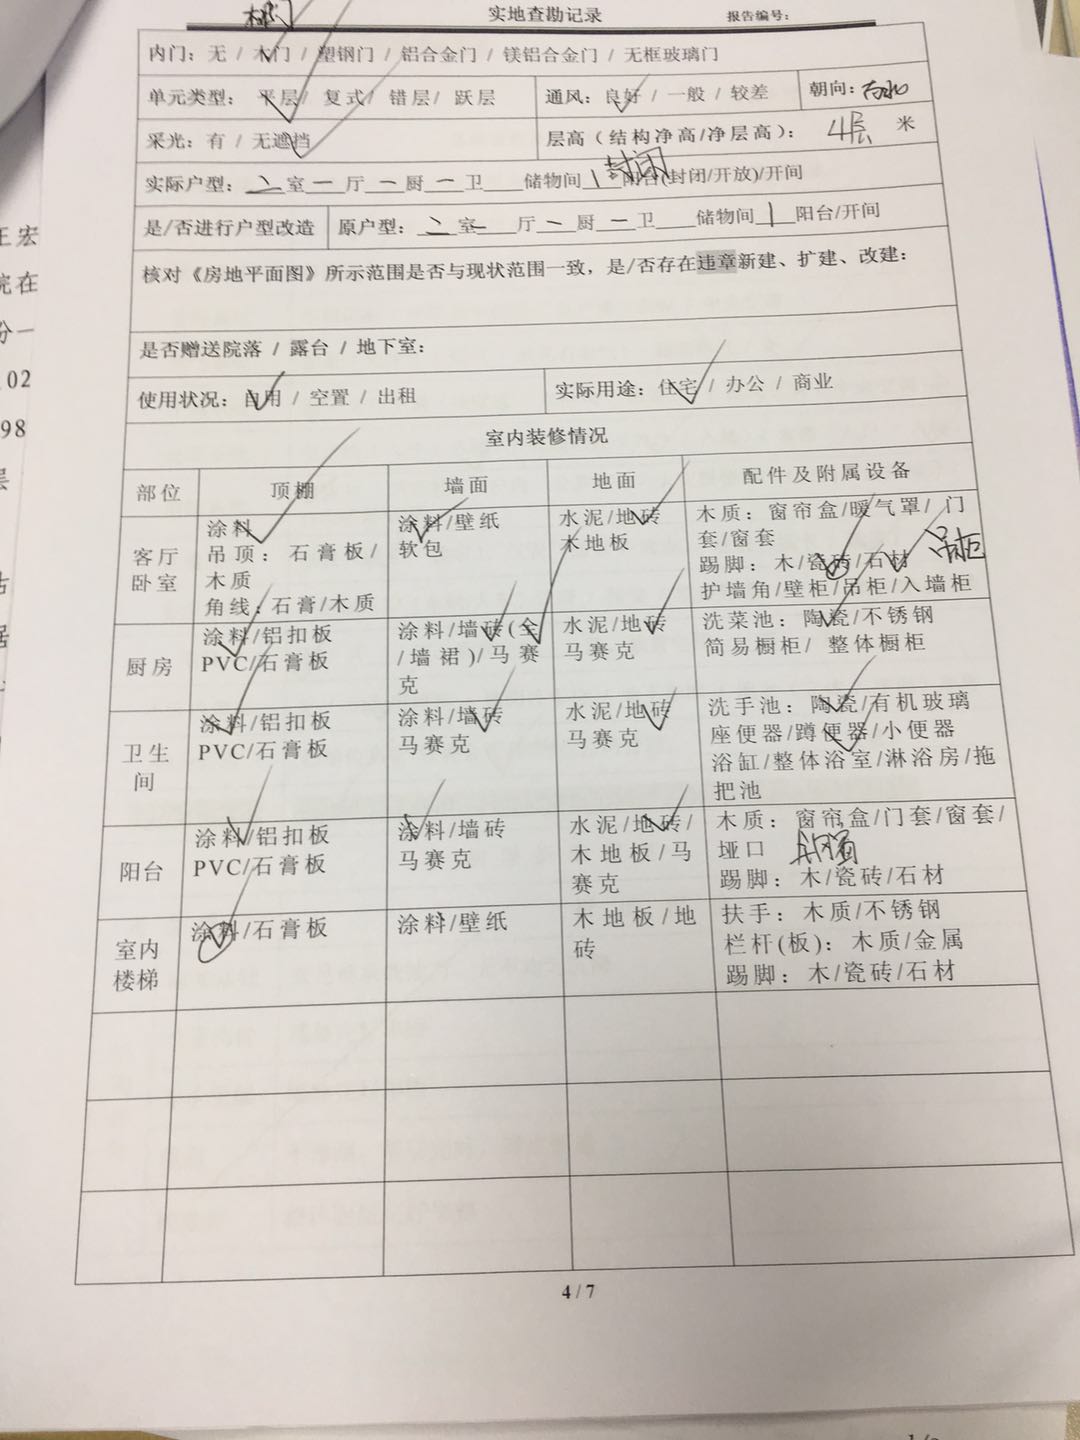 木门
实地查勘记录 报告编号：
内门：无 / 木门 / 塑钢门 / 铝合金门 / 镁铝合金门 / 无框玻璃门
单元类型： 平层/ 复式/ 错层/ 跃层 通风：良好 / 一般 / 较差 朝向：
采光：有 / 无遮挡 层高（结构净高/净层高）： 米
封闭
实际户型：二室一厅一厨一卫____储物间1阳台(封闭/开放)/开间
是/否进行户型改造 原户型：二室一厅一厨一卫____储物间1阳台/开间
核对《房地平面图》所示范围是否与现状范围一致，是/否存在违章新建、扩建、改建：
是否赠送院落 / 露台 / 地下室：
使用状况：自用 / 空置 / 出租 实际用途：住宅 / 办公 / 商业
室内装修情况
部位 顶棚 墙面 地面 配件及附属设备
客厅
卧室
涂料
吊顶：石膏板/
木质
角线：石膏/木质
涂料/壁纸
软包
水泥/地砖
木地板
木质：窗帘盒/暖气罩/ 门
套/窗套
踢脚：木/瓷砖/石材
护墙角/壁柜/吊柜/入墙柜
吊柜
厨房
涂料/铝扣板
PVC/石膏板
涂料/墙砖(全
/墙裙)/马赛
克
水泥/地砖
马赛克
洗菜池：陶瓷/不锈钢
简易橱柜/ 整体橱柜
卫生
间
涂料/铝扣板
PVC/石膏板
涂料/墙砖
马赛克
水泥/地砖
马赛克
洗手池：陶瓷/有机玻璃
座便器/蹲便器/小便器
浴缸/整体浴室/淋浴房/拖
把池
阳台
涂料/铝扣板
PVC/石膏板
涂料/墙砖
马赛克
水泥/地砖/
木地板/马
赛克
木质：窗帘盒/门套/窗套/
垭口
踢脚：木/瓷砖/石材
室内
楼梯
涂料/石膏板
涂料/壁纸
木地板/地
砖
扶手：木质/不锈钢
栏杆(板)：木质/金属
踢脚：木/瓷砖/石材
4 / 7